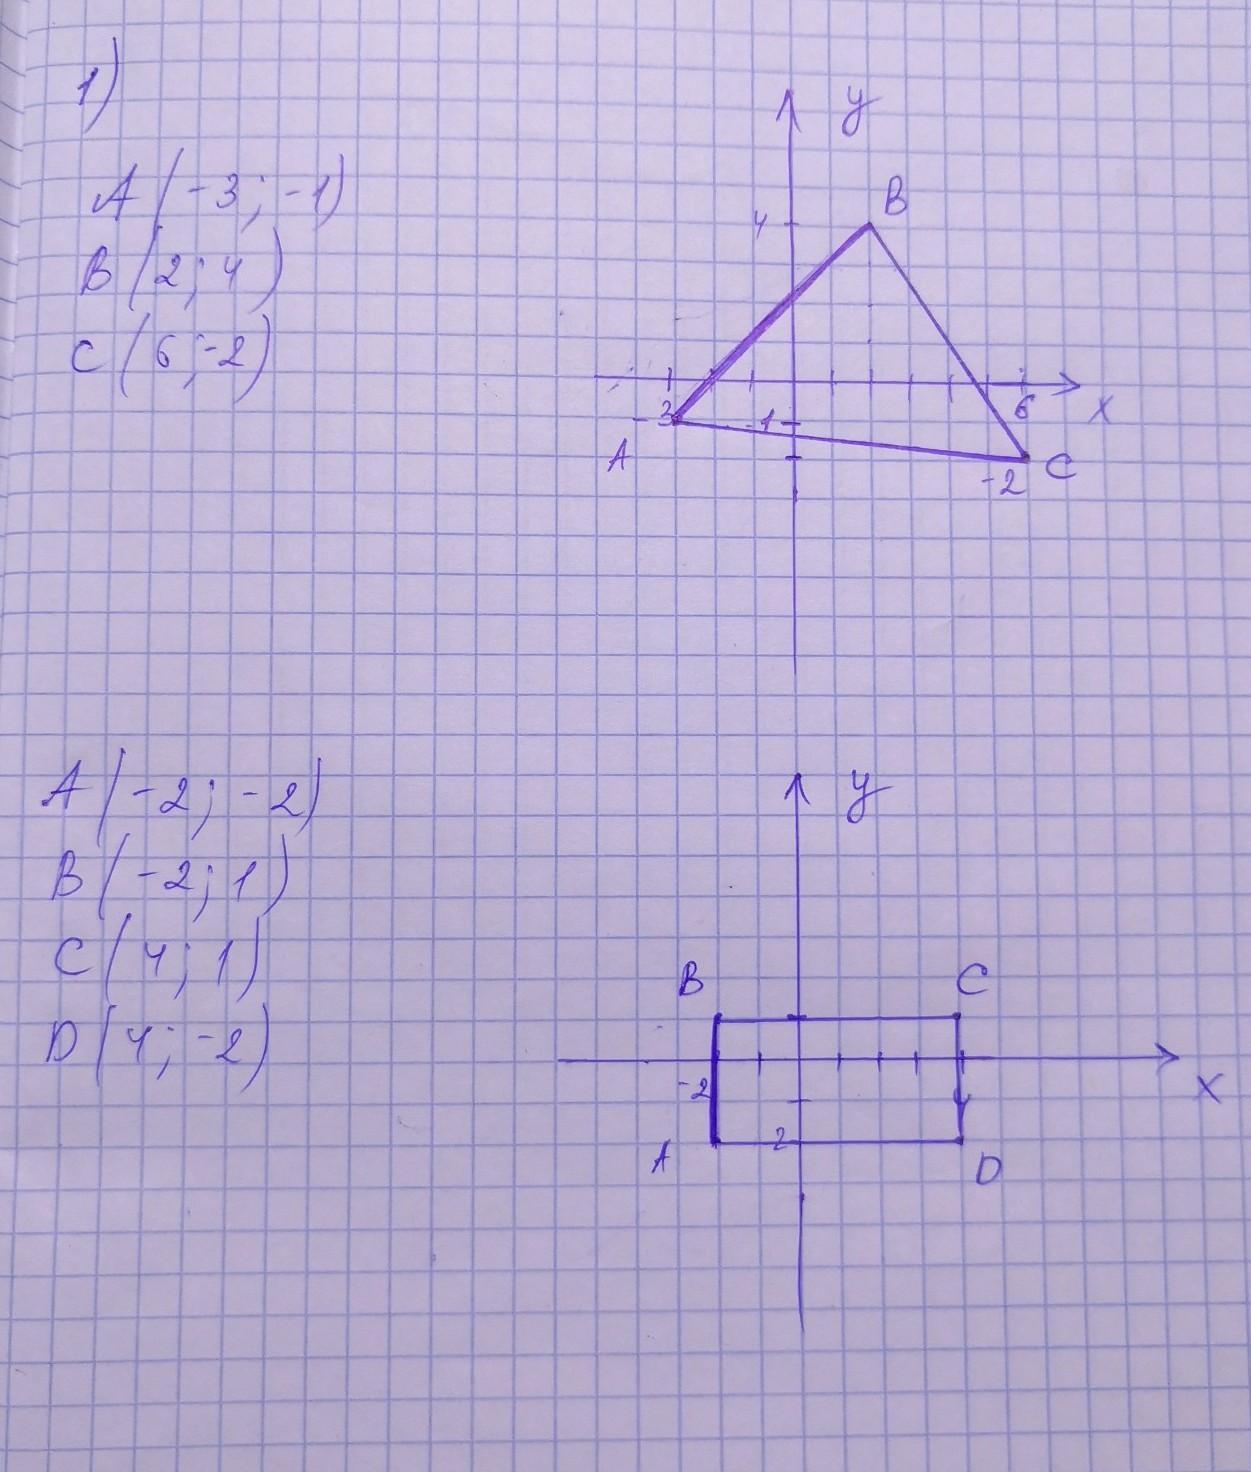 1)
A(-3; -1)
B(2; 4)
C(6; -2)
y
B
4
-3
-1
6
x
A
-2
C
A(-2; -2)
B(-2; 1)
C(4; 1)
D(4; -2)
y
B
C
-2
4
x
A
2
D